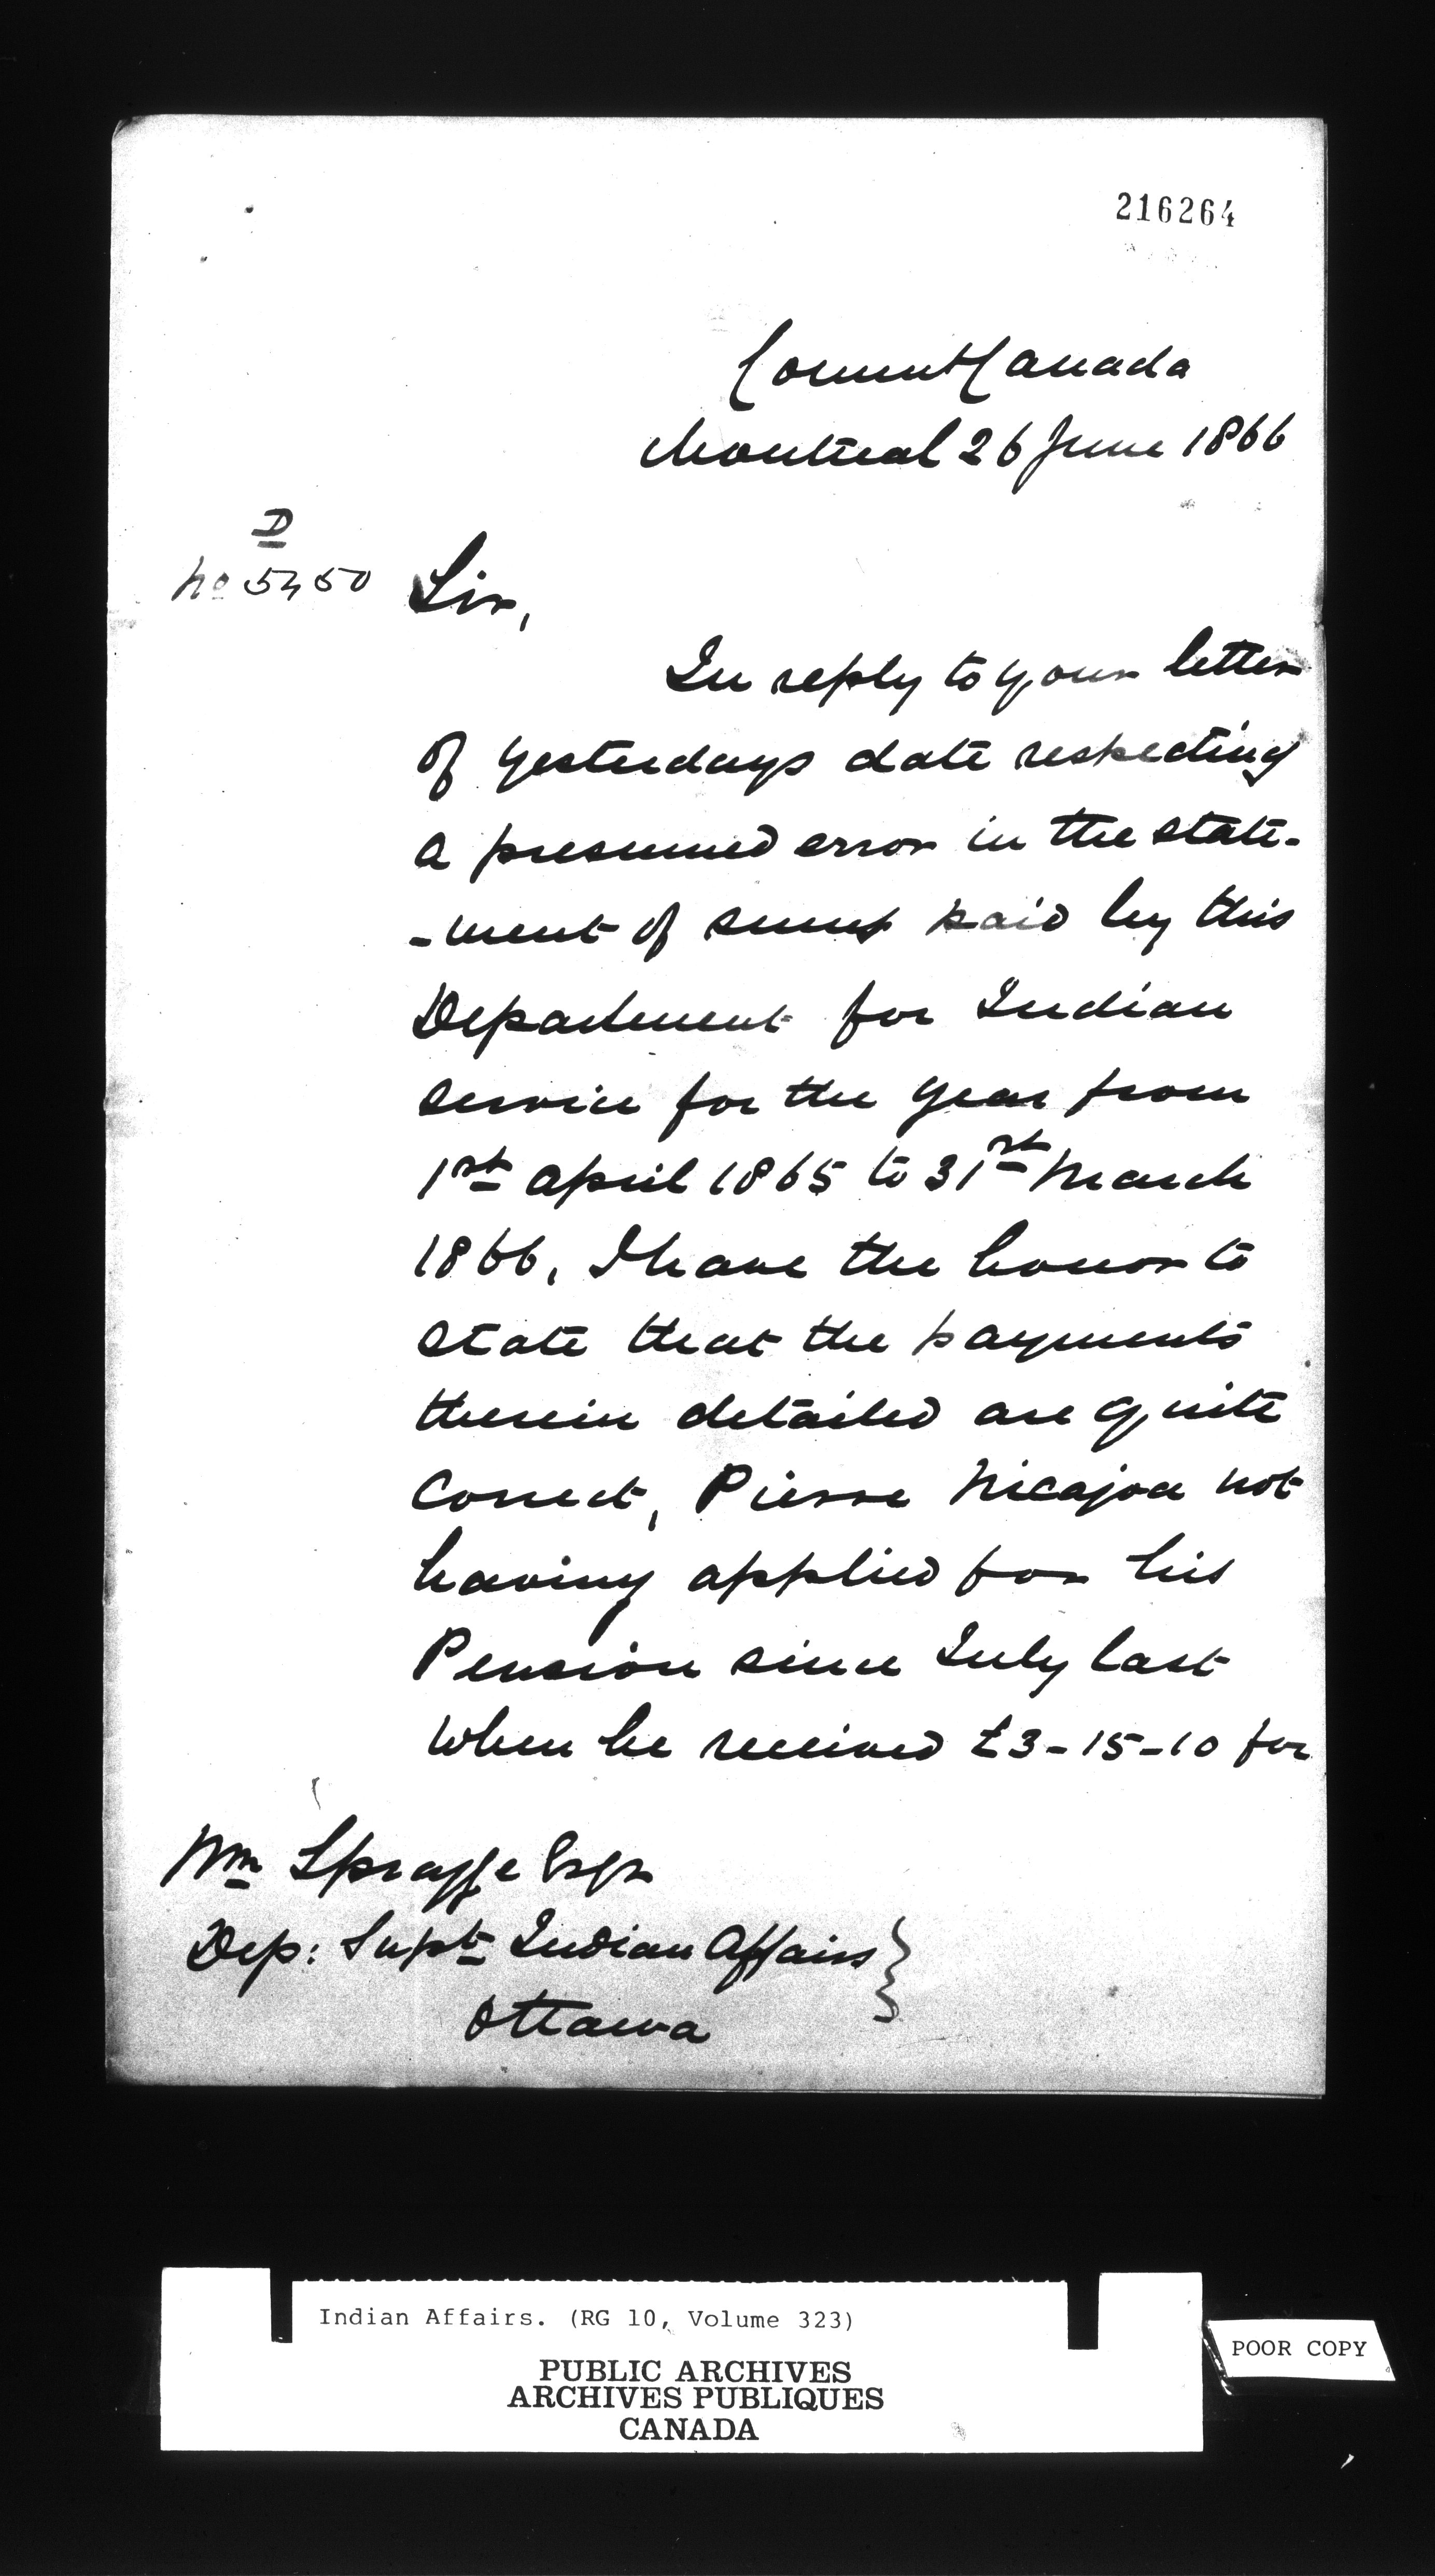 216264
Commt Canada
Montreal 26 June 1866
D
No 5450
Sir,
In reply to your letter
of yesterdays date respecting
a presumed error in the state-
-ment of sums paid by this
Department for Indian
service for the year from
1st April 1865 to 31st March
1866, I have the honor to
state that the payments
therein detailed are quite
correct, Pierre Nicajoa not
having applied for his
Pension since July last
when he received £3-15-10 for
Wm Spragge Esqr
Dep: Supt Indian Affairs
Ottawa
Indian Affairs. (RG 10, Volume 323)
PUBLIC ARCHIVES
ARCHIVES PUBLIQUES
CANADA
POOR COPY